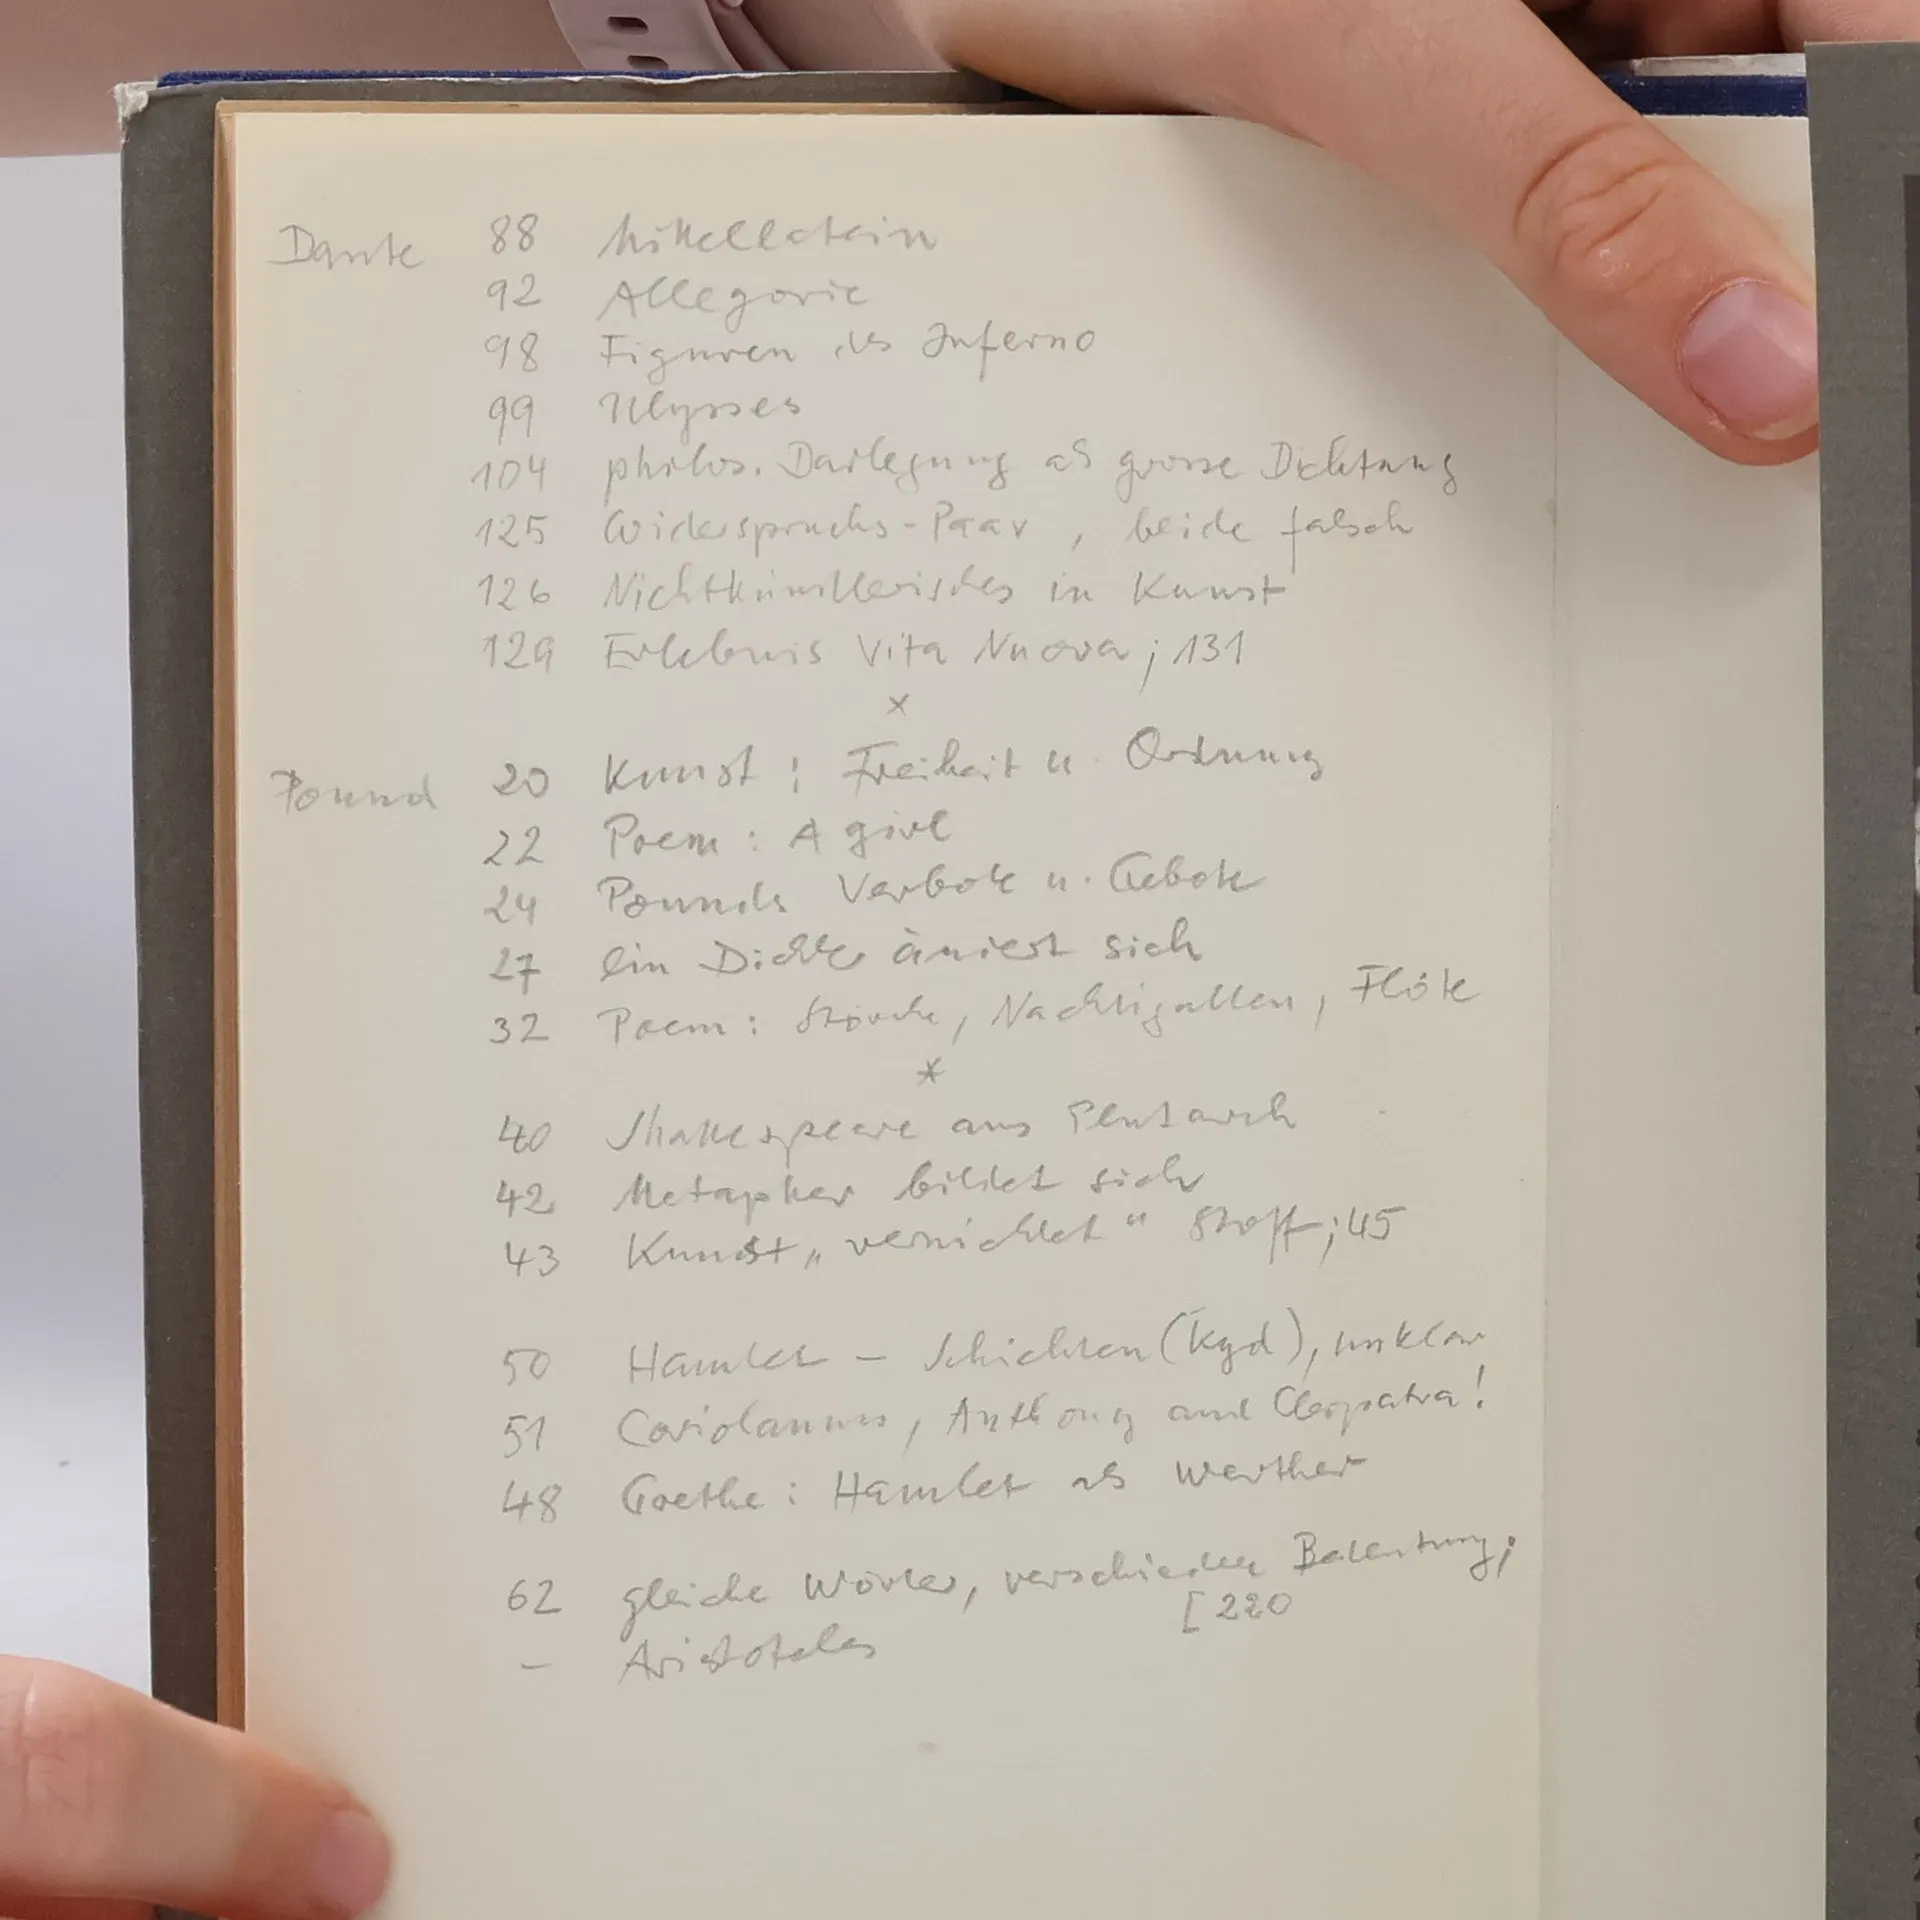 Dante 88 Mittellatein
92 Allegorie
98 Figuren des Inferno
99 Ulysses
104 philos. Darlegung als grosse Dichtung
125 Widerspruchs-Paar, beide falsch
126 Nichtkünstlerisches in Kunst
129 Erlebnis Vita Nuova; 131
x
Pound 20 Kunst: Freiheit u. Ordnung
22 Poem: A girl
24 Pounds Verbote u. Gebote
27 Ein Dichter sich
32 Poem: Störche, Nachtigallen, Flöte
*
40 Shakespeare aus Plutarch
42 Metapher bildet sich
43 Kunst „vernichtet" Stoff; 45
50 Hamlet – Schichten (Kyd), unklar
51 Coriolanus, Anthony and Cleopatra!
48 Goethe: Hamlet als Werther
62 gleiche Wörter, verschiedene Bedeutung;
[220
– Aristoteles